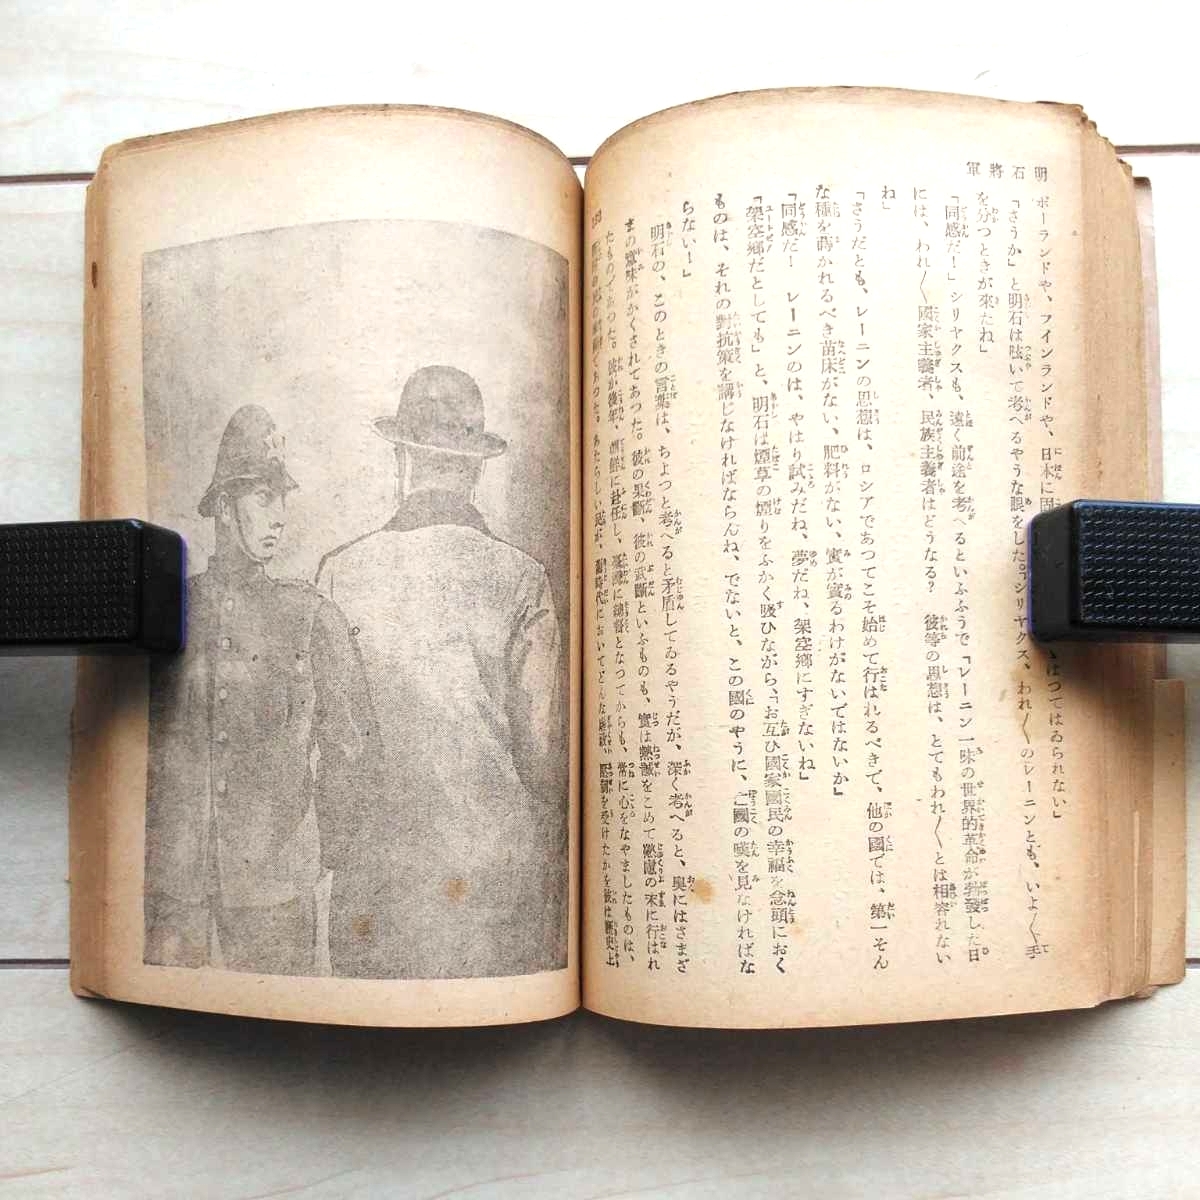 明石將軍
ポーランドや、フインランドや、日本に固 はつてはゐられない」
「さうか」と明石は呟いて考へるやうな眼をした。「シリヤクス、われ〱のレーニンとも、いよ〱手
を分つときが來たね」
「同感だ！」シリヤクスも、遠く前途を考へるといふふうで「レーニン一味の世界的革命が勃發した日
には、われ〱國家主義者、民族主義者はどうなる？　彼等の思想は、とてもわれ〱とは相容れない
ね」
「さうだとも、レーニンの思想は、ロシアであつてこそ始めて行はれるべきで、他の國では、第一そん
な種を蒔かれるべき苗床がない、肥料がない、實が實るわけがないではないか」
「同感だ！　レーニンのは、やはり試みだね、夢だね、架空郷にすぎないね」
「架空郷だとしても」と、明石は煙草の煙りをふかく吸ひながら、「お互ひ國家國民の幸福を念頭におく
ものは、それの對抗策を講じなければならんね、でないと、この國のやうに、亡國の嘆を見なければな
らない！」
明石の、このときの言葉は、ちよつと考へると矛盾してゐるやうだが、深く考へると、奥にはさまざ
まの意味がかくされてあつた。彼の果斷、彼の武斷といふものも、實は熱誠をこめて熟慮の末に行はれ
たものであつた。彼が後年、朝鮮に赴任し、臺灣に總督となつてからも、常に心をなやましたものは、
であつた。あたらしい民が、 時代においてどんな 壓制を受けたかを彼は歴史上
153